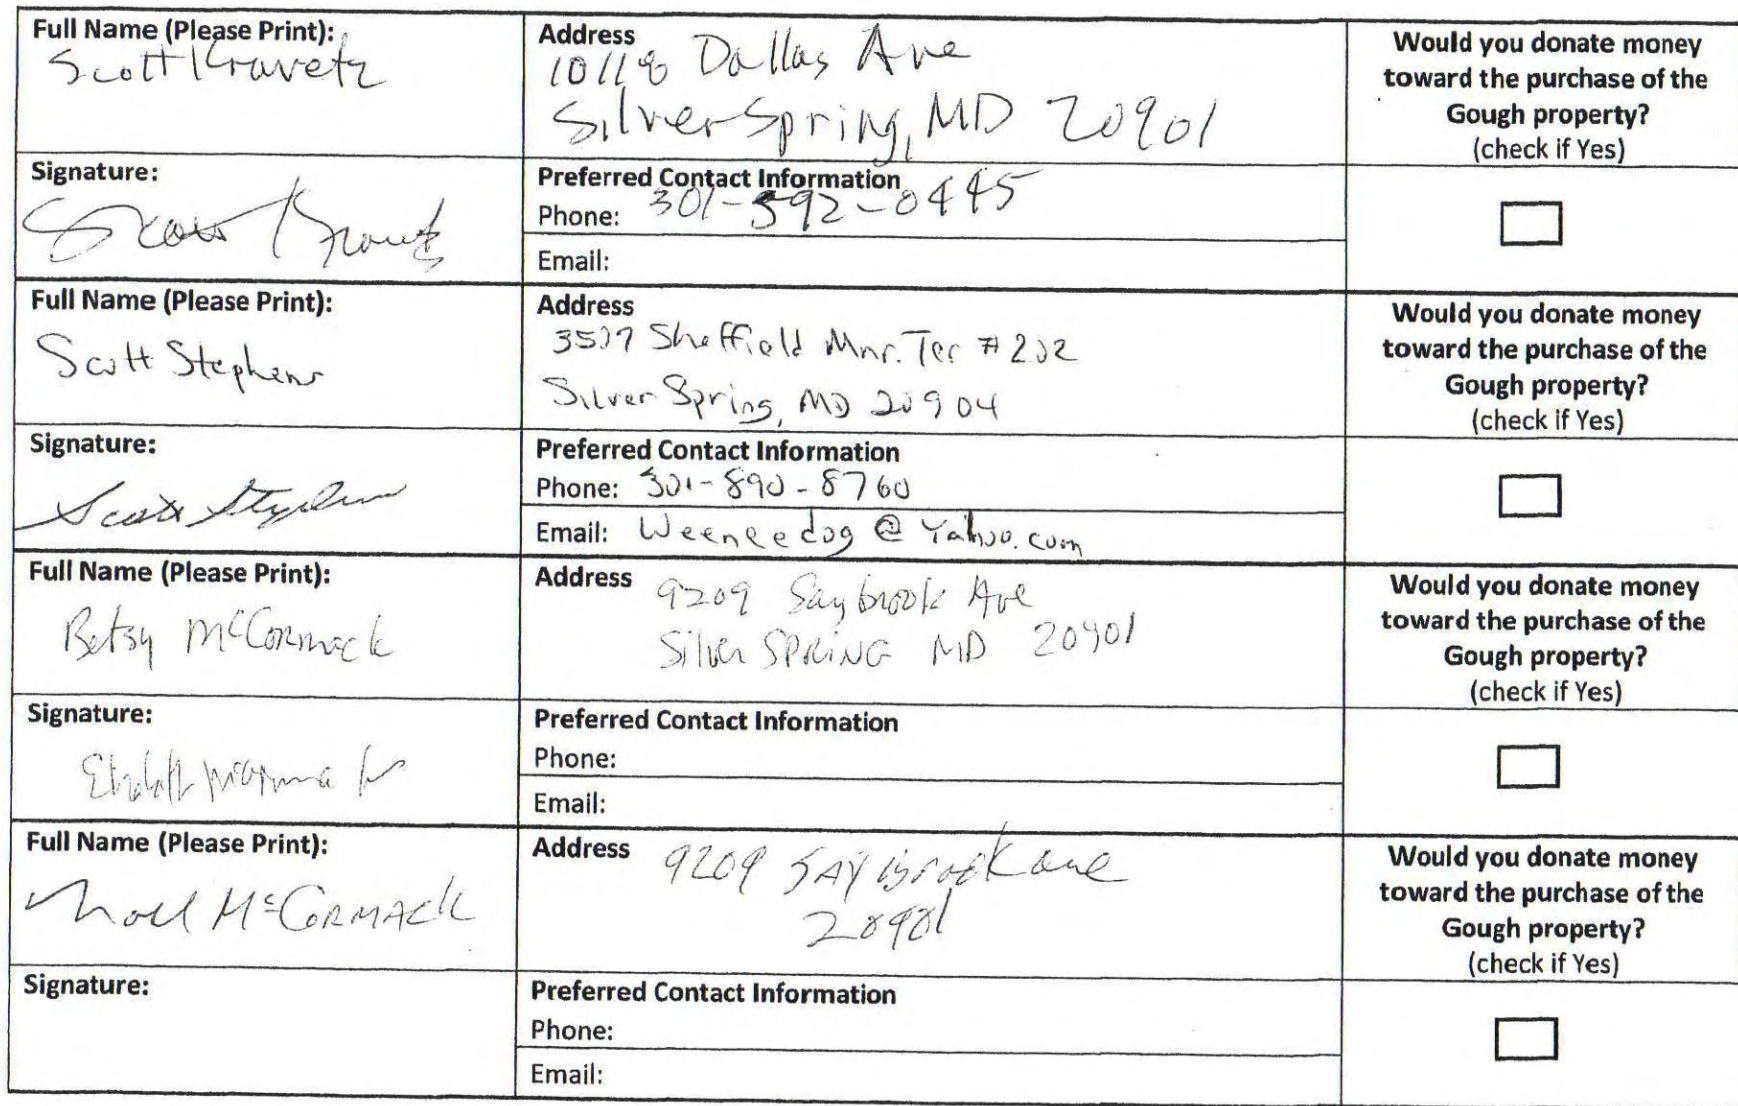 Full Name (Please Print):
Scott Kravetz
Address
Dallas Ave
Silver Spring, MD 20901
Would you donate money
toward the purchase of the
Gough property?
(check if Yes)
Signature:
Scott
Preferred Contact Information
Phone: 301-592-0445
Email:
Full Name (Please Print):
Scott Stephens
Address
Sheffield Mnr. Ter # 202
Silver Spring, MD 20904
Would you donate money
toward the purchase of the
Gough property?
(check if Yes)
Signature:
Scott Stephens
Preferred Contact Information
Phone: 301-890-8760
Email: Weeneedog@Yahoo.com
Full Name (Please Print):
Betsy McCormack
Address
9209 Saybrook Ave
Silver SPRING MD 20901
Would you donate money
toward the purchase of the
Gough property?
(check if Yes)
Signature:
Preferred Contact Information
Phone:
Email:
Full Name (Please Print):
Noel McCORMACK
Address
9209 SAYBrook ave
20901
Would you donate money
toward the purchase of the
Gough property?
(check if Yes)
Signature:
Preferred Contact Information
Phone:
Email: